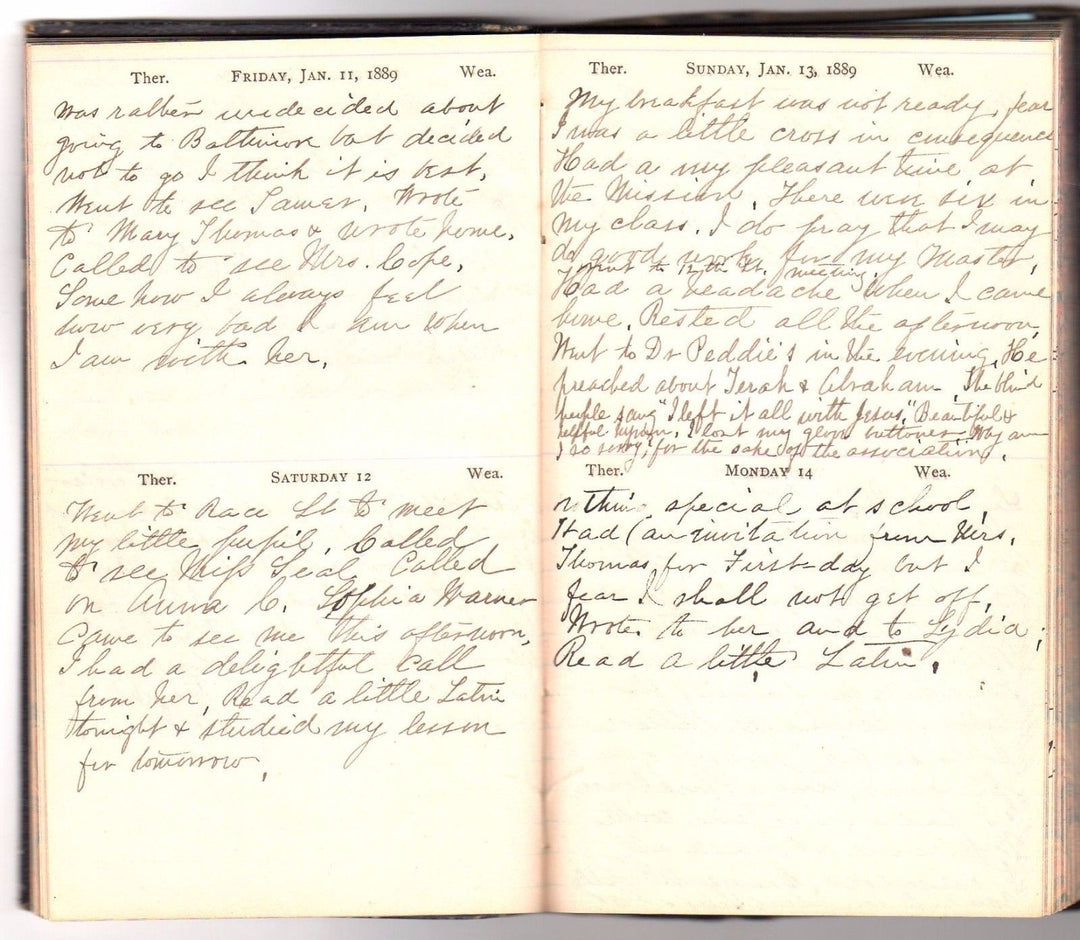 Ther. FRIDAY, JAN. 11, 1889 Wea.
Was rather undecided about
going to Baltimore but decided
not to go I think it is best.
Went to see Wrote
to Mary Thomas & wrote home.
Called to see Mrs. Cope.
Some how I always feel
how very bad I am when
I am with her.
Ther. SATURDAY 12 Wea.
Went to Race St to meet
my little pupil. Called
to see Miss Seal Called
on Anna C. Sophia Warner
Came to see me this afternoon,
I had a delightful call
from her, Read a little Latin
tonight & studied my lesson
for tomorrow.
Ther. SUNDAY, JAN. 13, 1889 Wea.
My breakfast was not ready, fear
I was a little cross in consequence
Had a my pleasant time at
the Mission. There were six in
my class. I do pray that I may
do good work for my Master.
I went to 12th St. meeting.
Had a headache when I came
home. Rested all the afternoon
Went to Dr Peddie's in the evening. He
preached about Terah & Abraham. The blind
people sang "I left it all with Jesus," Beautiful &
helpful hymn. I lost my glove buttoner Why am
I so sorry, for the sake of the association.
Ther. MONDAY 14 Wea.
nothing special at school,
Had (an invitation from Mrs.
Thomas for First-day but I
fear I shall not get off.
Wrote to her and to Lydia.
Read a little Latin.